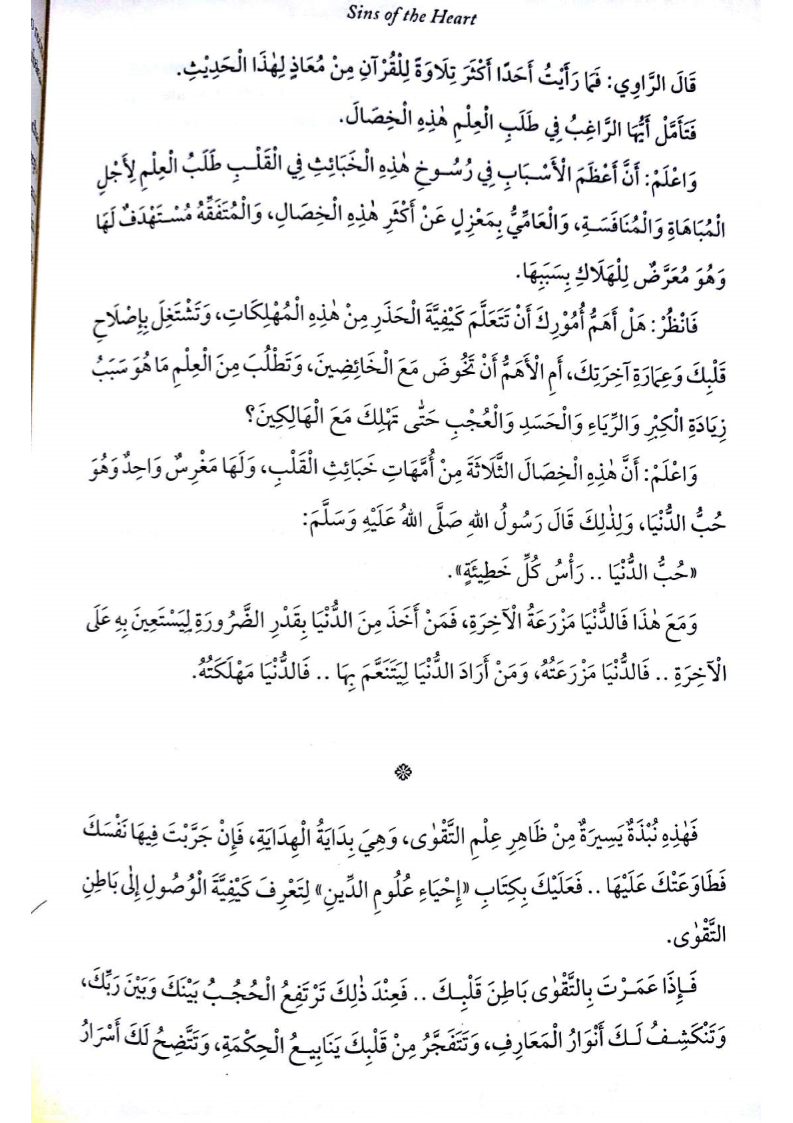 Sins of the Heart
قَالَ الرَّاوِي: فَمَا رَأَيْتُ أَحَدًا أَكْثَرَ تِلَاوَةً لِلْقُرْآنِ مِنْ مُعَاذٍ لِهٰذَا الْحَدِيْثِ.
فَتَأَمَّلْ أَيُّهَا الرَّاغِبُ فِي طَلَبِ الْعِلْمِ هٰذِهِ الْخِصَالَ.
وَاعْلَمْ: أَنَّ أَعْظَمَ الْأَسْبَابِ فِي رُسُوخِ هٰذِهِ الْخَبَائِثِ فِي الْقَلْبِ طَلَبُ الْعِلْمِ لِأَجْلِ
الْمُبَاهَاةِ وَالْمُنَافَسَةِ، وَالْعَامِّيُّ بِمَعْزِلٍ عَنْ أَكْثَرِ هٰذِهِ الْخِصَالِ، وَالْمُتَفَقِّهُ مُسْتَهْدَفٌ لَهَا
وَهُوَ مُعَرَّضٌ لِلْهَلَاكِ بِسَبَبِهَا.
فَانْظُرْ: هَلْ أَهَمُّ أُمُوْرِكَ أَنْ تَتَعَلَّمَ كَيْفِيَّةَ الْحَذَرِ مِنْ هٰذِهِ الْمُهْلِكَاتِ، وَتَشْتَغِلَ بِإِصْلَاحِ
قَلْبِكَ وَعِمَارَةِ آخِرَتِكَ، أَمِ الْأَهَمُّ أَنْ تَخُوضَ مَعَ الْخَائِضِينَ، وَتَطْلُبَ مِنَ الْعِلْمِ مَا هُوَ سَبَبُ
زِيَادَةِ الْكِبْرِ وَالرِّيَاءِ وَالْحَسَدِ وَالْعُجْبِ حَتّٰى تَهْلِكَ مَعَ الْهَالِكِينَ؟
وَاعْلَمْ: أَنَّ هٰذِهِ الْخِصَالَ الثَّلَاثَةَ مِنْ أُمَّهَاتِ خَبَائِثِ الْقَلْبِ، وَلَهَا مَغْرِسٌ وَاحِدٌ وَهُوَ
حُبُّ الدُّنْيَا، وَلِذٰلِكَ قَالَ رَسُولُ اللهِ صَلَّى اللهُ عَلَيْهِ وَسَلَّمَ:
«حُبُّ الدُّنْيَا .. رَأْسُ كُلِّ خَطِيئَةٍ».
وَمَعَ هٰذَا فَالدُّنْيَا مَزْرَعَةُ الْآخِرَةِ، فَمَنْ أَخَذَ مِنَ الدُّنْيَا بِقَدْرِ الضَّرُورَةِ لِيَسْتَعِينَ بِهِ عَلَى
الْآخِرَةِ .. فَالدُّنْيَا مَزْرَعَتُهُ، وَمَنْ أَرَادَ الدُّنْيَا لِيَتَنَعَّمَ بِهَا .. فَالدُّنْيَا مَهْلَكَتُهُ.
فَهٰذِهِ نُبْذَةٌ يَسِيرَةٌ مِنْ ظَاهِرِ عِلْمِ التَّقْوٰى، وَهِيَ بِدَايَةُ الْهِدَايَةِ، فَإِنْ جَرَّبْتَ فِيهَا نَفْسَكَ
فَطَاوَعَتْكَ عَلَيْهَا .. فَعَلَيْكَ بِكِتَابِ «إِحْيَاءِ عُلُومِ الدِّينِ» لِتَعْرِفَ كَيْفِيَّةَ الْوُصُولِ إِلٰى بَاطِنِ
التَّقْوٰى.
فَإِذَا عَمَرْتَ بِالتَّقْوٰى بَاطِنَ قَلْبِكَ .. فَعِنْدَ ذٰلِكَ تَرْتَفِعُ الْحُجُبُ بَيْنَكَ وَبَيْنَ رَبِّكَ،
وَتَنْكَشِفُ لَكَ أَنْوَارُ الْمَعَارِفِ، وَتَتَفَجَّرُ مِنْ قَلْبِكَ يَنَابِيعُ الْحِكْمَةِ، وَتَتَّضِحُ لَكَ أَسْرَارُ